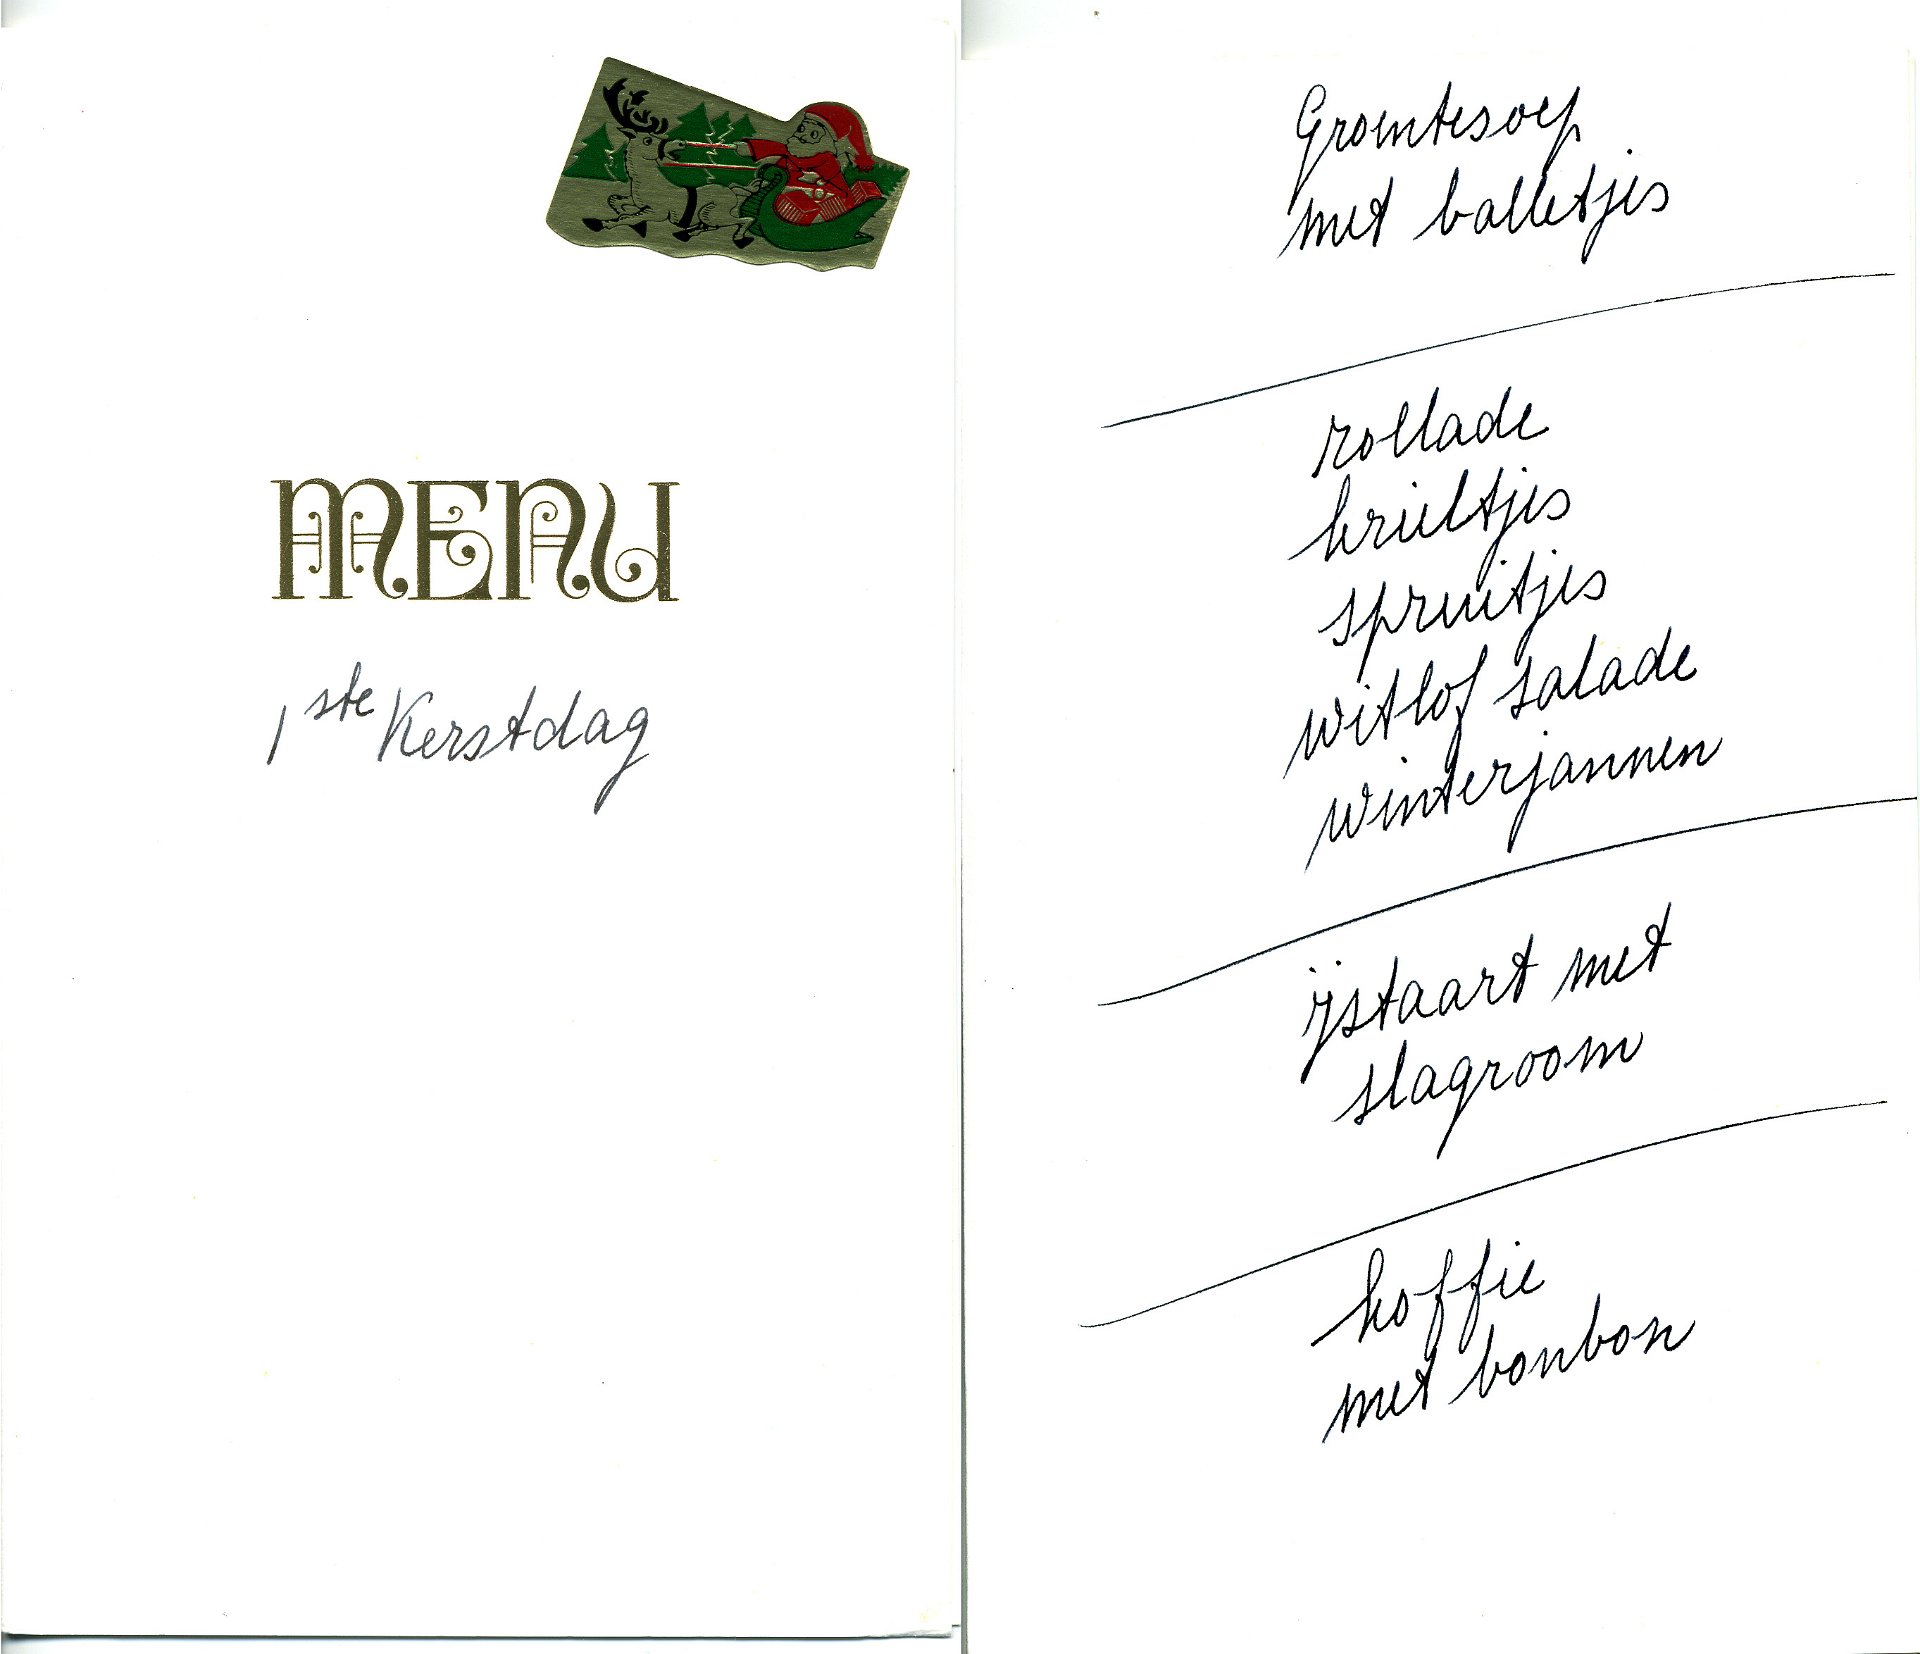 MENU
1ste Kerstdag
Groentesoep
met balletjes
rollade
krieltjes
spruitjes
witlof salade
winterjannen
ijstaart met
slagroom
koffie
met bonbon